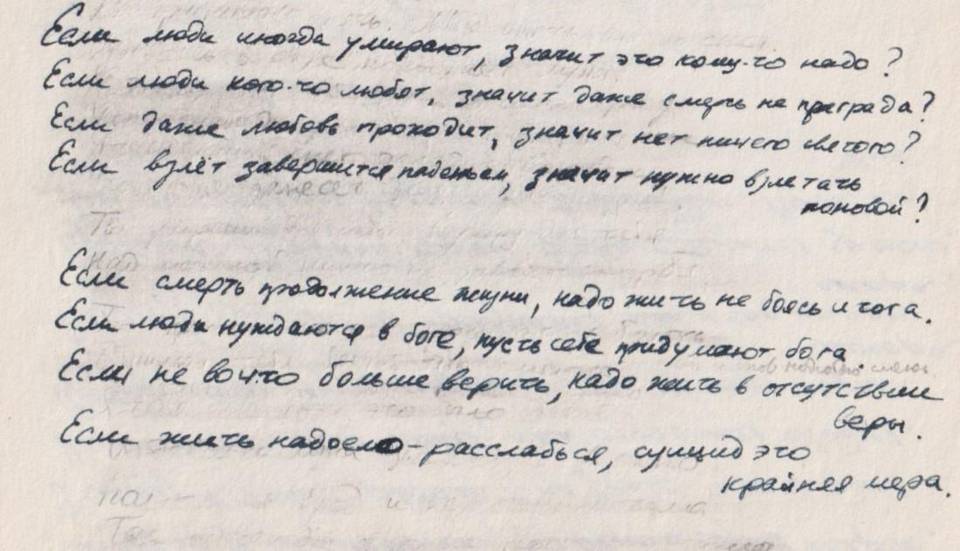 Если люди иногда умирают, значит это кому-то надо?
Если люди кого-то любят, значит даже смерть не преграда?
Если даже любовь проходит, значит нет ничего святого?
Если взлёт завершится паденьем, значит нужно взлетать
поновой?
Если смерть продолжение жизни, надо жить не боясь ничога.
Если люди нуждаются в боге, пусть себе придумают бога.
Если не во что больше верить, надо жить в отсутствии
веры.
Если жить надоело - расслабься, суицид это
крайняя мера.